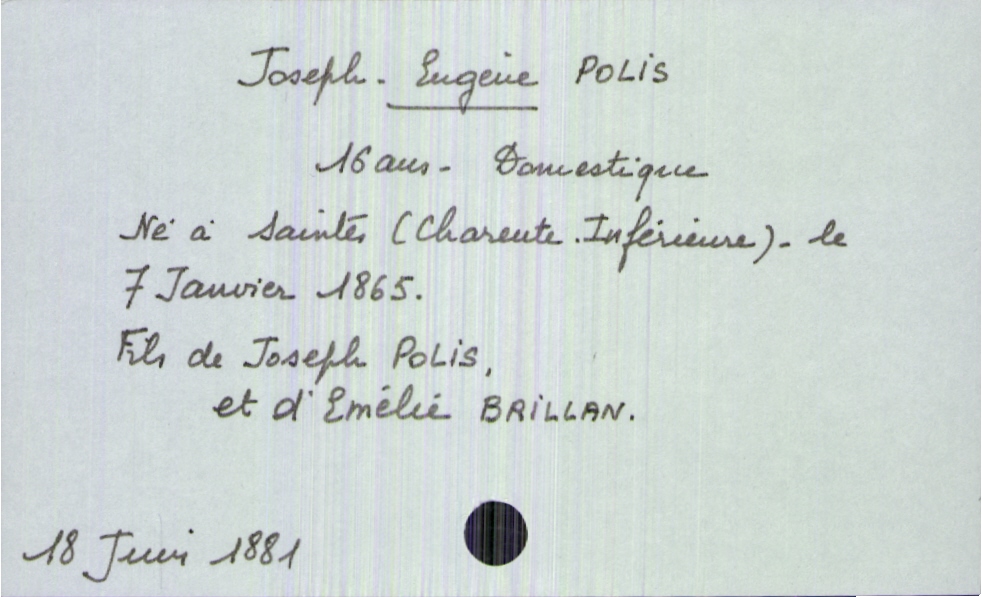 Joseph - Eugène POLIS
16 ans - Domestique
Né à Saintes (Charente.Inférieure) - le
7 Janvier 1865.
Fils de Joseph POLIS,
et d'Emélie BRILLAN.
18 Juin 1881